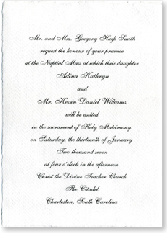 Mr. and Mrs. Gregory Hugh Smith
request the honour of your presence
at the Nuptial Mass at which their daughter
Kathryn
and
Mr. Kevin Daniel Williams
will be united
in the sacrament of Holy Matrimony
on Saturday, the thirteenth of January
Two thousand seven
at four o'clock in the afternoon
Summerall Chapel
The Citadel
Charleston, South Carolina